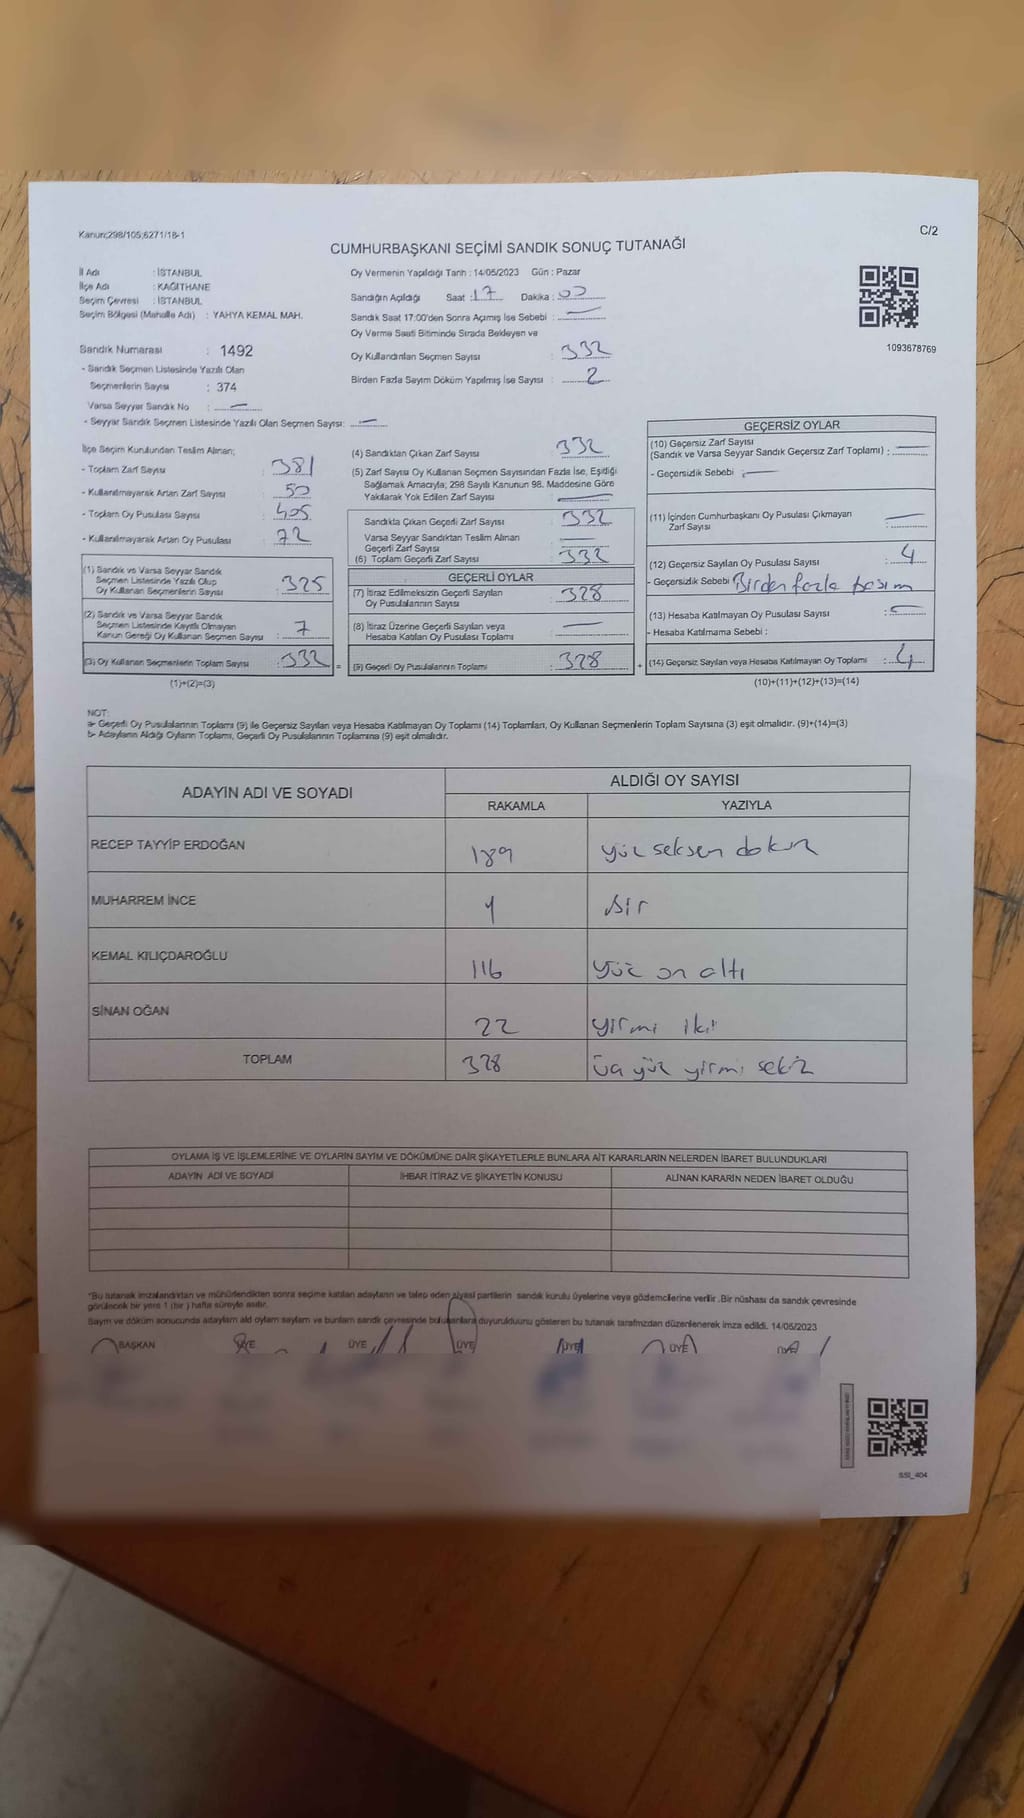 Kanun;298/105;6271/18-1
C/2
CUMHURBAŞKANI SEÇİMİ SANDIK SONUÇ TUTANAĞI
İl Adı : İSTANBUL
İlçe Adı : KAĞITHANE
Seçim Çevresi : İSTANBUL
Seçim Bölgesi (Mahalle Adı) : YAHYA KEMAL MAH.
Sandık Numarası : 1492
- Sandık Seçmen Listesinde Yazılı Olan
Seçmenlerin Sayısı : 374
Varsa Seyyar Sandık No : —
- Seyyar Sandık Seçmen Listesinde Yazılı Olan Seçmen Sayısı: —
Oy Vermenin Yapıldığı Tarih : 14/05/2023 Gün : Pazar
Sandığın Açıldığı Saat : 17 Dakika : 00
Sandık Saat 17:00'den Sonra Açımış İse Sebebi : —
Oy Verme Saati Bitiminde Sırada Bekleyen ve
Oy Kullandırılan Seçmen Sayısı : 332
Birden Fazla Sayım Döküm Yapılmış İse Sayısı : 2
1093678769
İlçe Seçim Kurulundan Teslim Alınan;
- Toplam Zarf Sayısı : 381
- Kullanılmayarak Artan Zarf Sayısı : 50
- Toplam Oy Pusulası Sayısı : 405
- Kullanılmayarak Artan Oy Pusulası : 72
(1) Sandık ve Varsa Seyyar Sandık
Seçmen Listesinde Yazılı Olup
Oy Kullanan Seçmenlerin Sayısı : 325
(2) Sandık ve Varsa Seyyar Sandık
Seçmen Listesinde Kayıtlı Olmayan
Kanun Gereği Oy Kullanan Seçmen Sayısı : 7
(3) Oy Kullanan Seçmenlerin Toplam Sayısı : 332 =
(1)+(2)=(3)
(4) Sandıktan Çıkan Zarf Sayısı : 332
(5) Zarf Sayısı Oy Kullanan Seçmen Sayısından Fazla İse, Eşitliği
Sağlamak Amacıyla; 298 Sayılı Kanunun 98. Maddesine Göre
Yakılarak Yok Edilen Zarf Sayısı : —
Sandıkta Çıkan Geçerli Zarf Sayısı : 332
Varsa Seyyar Sandıktan Teslim Alınan
Geçerli Zarf Sayısı : —
(6) Toplam Geçerli Zarf Sayısı : 332
GEÇERLİ OYLAR
(7) İtiraz Edilmeksizin Geçerli Sayılan
Oy Pusulalarının Sayısı : 328
(8) İtiraz Üzerine Geçerli Sayılan veya
Hesaba Katılan Oy Pusulası Toplamı : —
(9) Geçerli Oy Pusulalarının Toplamı : 328 +
GEÇERSİZ OYLAR
(10) Geçersiz Zarf Sayısı
(Sandık ve Varsa Seyyar Sandık Geçersiz Zarf Toplamı) : —
- Geçersizlik Sebebi : —
(11) İçinden Cumhurbaşkanı Oy Pusulası Çıkmayan
Zarf Sayısı : —
(12) Geçersiz Sayılan Oy Pusulası Sayısı : 4
- Geçersizlik Sebebi : Birden fazla basım
(13) Hesaba Katılmayan Oy Pusulası Sayısı : —
- Hesaba Katılmama Sebebi :
(14) Geçersiz Sayılan veya Hesaba Katılmayan Oy Toplamı : 4
(10)+(11)+(12)+(13)=(14)
NOT:
a- Geçerli Oy Pusulalarının Toplamı (9) ile Geçersiz Sayılan veya Hesaba Katılmayan Oy Toplamı (14) Toplamları, Oy Kullanan Seçmenlerin Toplam Sayısına (3) eşit olmalıdır. (9)+(14)=(3)
b- Adayların Aldığı Oyların Toplamı, Geçerli Oy Pusulalarının Toplamına (9) eşit olmalıdır.
ADAYIN ADI VE SOYADI
ALDIĞI OY SAYISI
RAKAMLA YAZIYLA
RECEP TAYYİP ERDOĞAN 189 yüz seksen dokuz
MUHARREM İNCE 1 bir
KEMAL KILIÇDAROĞLU 116 yüz on altı
SİNAN OĞAN 22 yirmi iki
TOPLAM 328 üç yüz yirmi sekiz
OYLAMA İŞ VE İŞLEMLERİNE VE OYLARIN SAYIM VE DÖKÜMÜNE DAİR ŞİKAYETLERLE BUNLARA AİT KARARLARIN NELERDEN İBARET BULUNDUKLARI
ADAYIN ADI VE SOYADI İHBAR İTİRAZ VE ŞİKAYETİN KONUSU ALINAN KARARIN NEDEN İBARET OLDUĞU
*Bu tutanak imzalandıktan ve mühürlendikten sonra seçime katılan adayların ve talep eden siyasi partilerin sandık kurulu üyelerine veya gözlemcilerine verilir .Bir nüshası da sandık çevresinde
görülecek bir yere 1 (bir ) hafta süreyle asılır.
Sayım ve döküm sonucunda adayların aldı oyların sayıları ve bunların sandık çevresinde bulunanlara duyurulduunu gösteren bu tutanak tarafımızdan düzenlenerek imza edildi. 14/05/2023
BAŞKAN ÜYE ÜYE ÜYE ÜYE ÜYE ÜYE
SSI_404